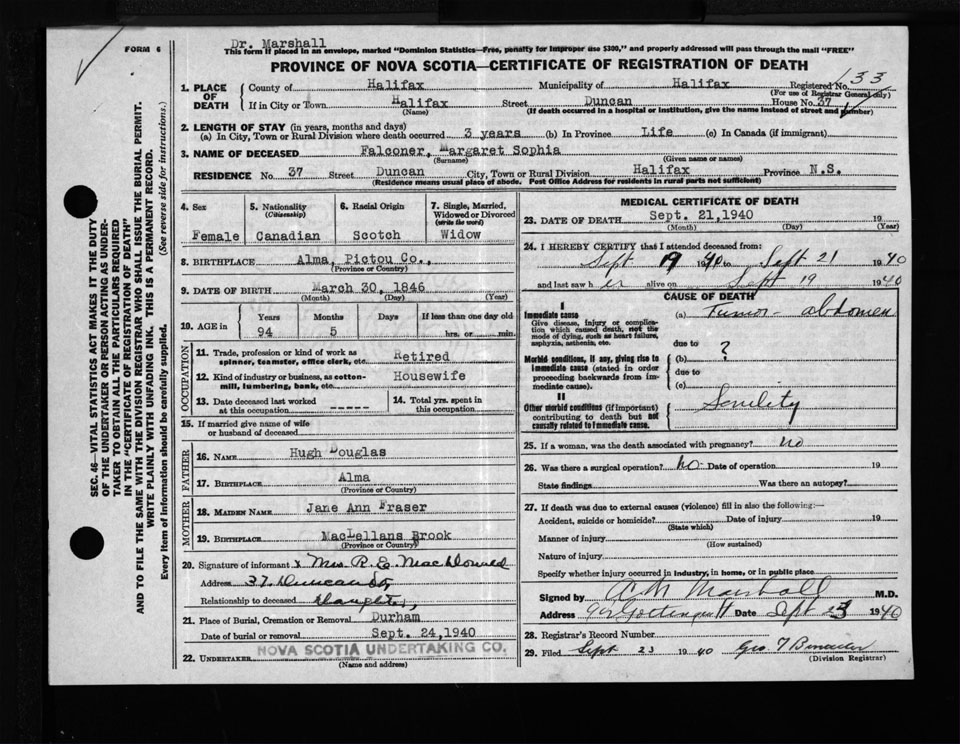 Dr. Marshall
FORM 6
This form if placed in an envelope, marked "Dominion Statistics—Free, penalty for improper use $300," and properly addressed will pass through the mail "FREE"
PROVINCE OF NOVA SCOTIA—CERTIFICATE OF REGISTRATION OF DEATH
SEC. 46—VITAL STATISTICS ACT MAKES IT THE DUTY
OF THE UNDERTAKER OR PERSON ACTING AS UNDER-
TAKER TO OBTAIN ALL THE PARTICULARS REQUIRED
IN THE "CERTIFICATE OF REGISTRATION OF DEATH"
AND TO FILE THE SAME WITH THE DIVISION REGISTRAR WHO SHALL ISSUE THE BURIAL PERMIT.
WRITE PLAINLY WITH UNFADING INK. THIS IS A PERMANENT RECORD.
Every item of information should be carefully supplied. (See reverse side for instructions.)
1. PLACE OF DEATH
County of Halifax Municipality of Halifax Registered No. 33
(For use of Registrar General only)
If in City or Town Halifax Street Duncan House No. 37
(Name) (If death occurred in a hospital or institution, give the name instead of street and number)
2. LENGTH OF STAY (in years, months and days)
(a) In City, Town or Rural Division where death occurred 3 years (b) In Province Life (c) In Canada (if immigrant)
3. NAME OF DECEASED Falconer, Margaret Sophia
(Surname) (Given name or names)
RESIDENCE No. 37 Street Duncan City, Town or Rural Division Halifax Province N.S.
(Residence means usual place of abode. Post Office Address for residents in rural parts not sufficient)
4. Sex
Female
5. Nationality
(Citizenship)
Canadian
6. Racial Origin
Scotch
7. Single, Married, Widowed or Divorced
(write the word)
Widow
8. BIRTHPLACE Alma, Pictou Co.,
(Province or Country)
9. DATE OF BIRTH March 30, 1846
(Month) (Day) (Year)
10. AGE in Years Months Days If less than one day old
94 5 hrs. or min.
OCCUPATION
11. Trade, profession or kind of work as spinner, teamster, office clerk, etc. Retired
12. Kind of industry or business, as cotton-mill, lumbering, bank, etc. Housewife
13. Date deceased last worked at this occupation -----
14. Total yrs. spent in this occupation
15. If married give name of wife or husband of deceased
FATHER
16. NAME Hugh Douglas
17. BIRTHPLACE Alma
(Province or Country)
MOTHER
18. MAIDEN NAME Jane Ann Fraser
19. BIRTHPLACE MacLellans Brook
(Province or Country)
20. Signature of informant x Mrs R. E. MacDonald
Address 37 Duncan St,
Relationship to deceased daughter,
21. Place of Burial, Cremation or Removal Durham
Date of burial or removal Sept. 24, 1940
22. UNDERTAKER NOVA SCOTIA UNDERTAKING CO.
(Name and address)
MEDICAL CERTIFICATE OF DEATH
23. DATE OF DEATH Sept. 21, 1940 19
(Month) (Day) (Year)
24. I HEREBY CERTIFY that I attended deceased from:
Sept 19 1940 to Sept 21 1940
and last saw h er alive on Sept 19 1940
CAUSE OF DEATH
I
Immediate cause
Give disease, injury or complication which caused death, not the mode of dying, such as heart failure, asphyxia, asthenia, etc.
(a) Tumor - abdomen
due to ?
Morbid conditions, if any, giving rise to immediate cause (stated in order proceeding backwards from immediate cause).
(b)
due to
(c)
II
Other morbid conditions (if important) contributing to death but not causally related to immediate cause.
Senility
25. If a woman, was the death associated with pregnancy? no
26. Was there a surgical operation? no Date of operation 19
State findings Was there an autopsy?
27. If death was due to external causes (violence) fill in also the following:—
Accident, suicide or homicide? Date of injury 19
(State which)
Manner of injury
(How sustained)
Nature of injury
Specify whether injury occurred in industry, in home, or in public place
Signed by Marshall M.D.
Address Gottingen St Date Sept 1940
28. Registrar's Record Number
29. Filed Sept 23 1940 Geo.
(Division Registrar)